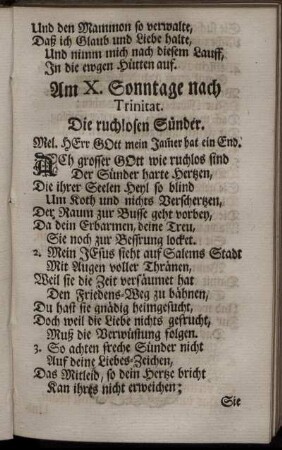 Und den Mammon so verwalte,
Daß ich Glaub und Liebe halte,
Und nimm mich nach diesem Lauff,
In die ewgen Hütten auf.
Am X. Sonntage nach
Trinitat.
Die ruchlosen Sünder.
Mel. HErr GOtt mein Jam̃er hat ein End.
ACh grosser GOtt wie ruchlos sind
Der Sünder harte Hertzen,
Die ihrer Seelen Heyl so blind
Um Koth und nichts Verschertzen,
Der Raum zur Busse geht vorbey,
Da dein Erbarmen, deine Treu,
Sie noch zur Bessrung locket.
2. Mein JEsus sieht auf Salems Stadt
Mit Augen voller Thränen,
Weil sie die Zeit versäumet hat
Den Friedens-Weg zu bähnen,
Du hast sie gnädig heimgesucht,
Doch weil die Liebe nichts gefrucht,
Muß die Verwüstung folgen.
3. So achten freche Sünder nicht
Auf deine Liebes-Zeichen,
Das Mitleid, so dein Hertze bricht
Kan ihres nicht erweichen:
Sie